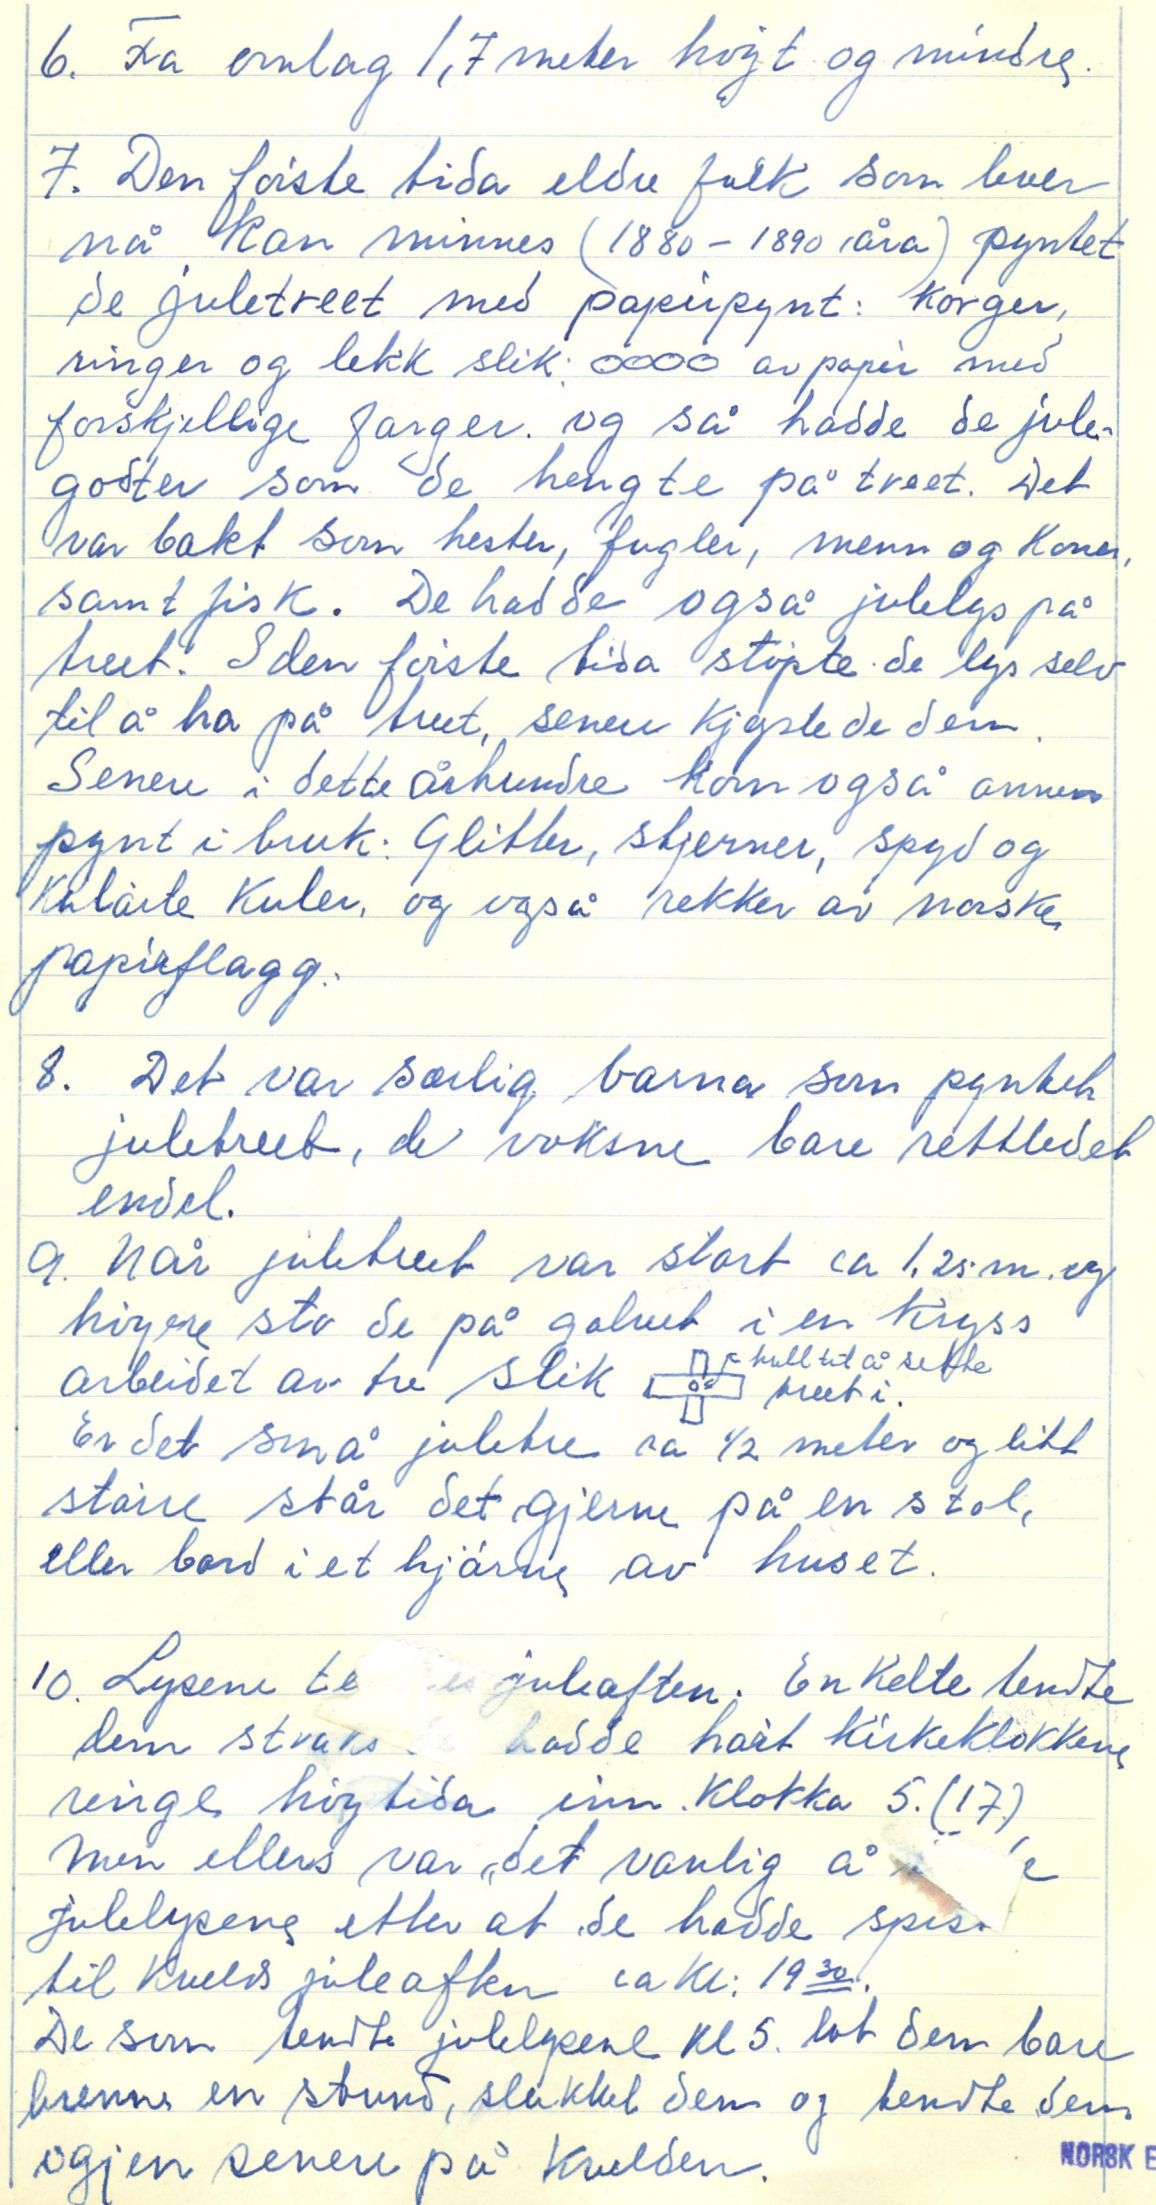 6. Fra omlag 1,7 meter høyt og mindre.
7. Den første tida eldre folk som lever
nå kan minnes (1880-1890 åra) pyntet
de juletreet med papirpynt: Korger,
ringer og lekk slik: av papir med
forskjellige farger. og så hadde de jule-
godter som de hengte på treet. Det
var bakt som hester, fugler, menn og koner,
samt fisk. De hadde også julelys på
treet. I den første tida støpte de lys selv
til å ha på treet, senere kjøpte de dem.
Senere i dette århundre kom også annen
pynt i bruk: Glitter, stjerner, spyd og
kulørte kuler, og også rekker av norske
papirflagg.
8. Det var særlig barna som pyntet
juletreet, de voksne bare rettledet
endel.
9. Når juletreet var stort ca 1,25 m. og
høyere sto de på golvet i en kryss
arbeidet av tre slik hull til å sette
treet i.
Er det små juletre ca 1/2 meter og litt
større står det gjerne på en stol,
eller bord i et hjørne av huset.
10. Lysene juleaften. Enkelte tendte
dem straks hadde hørt kirkeklokkene
ringe høytida inn. Klokka 5. (17),
men ellers var det vanlig å
julelysene etter at de hadde
til kvelds juleaften ca kl: 19 30.
De som tendte julelysene kl 5. lot dem bare
brenne en stund, slukket dem og tendte dem
ogjen senere på kvelden.
NORSK E